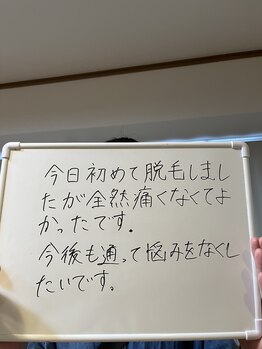 今日初めて脱毛しまし
たが全然痛くなくてよ
かったです.
今後も通って悩みをなくし
たいです。